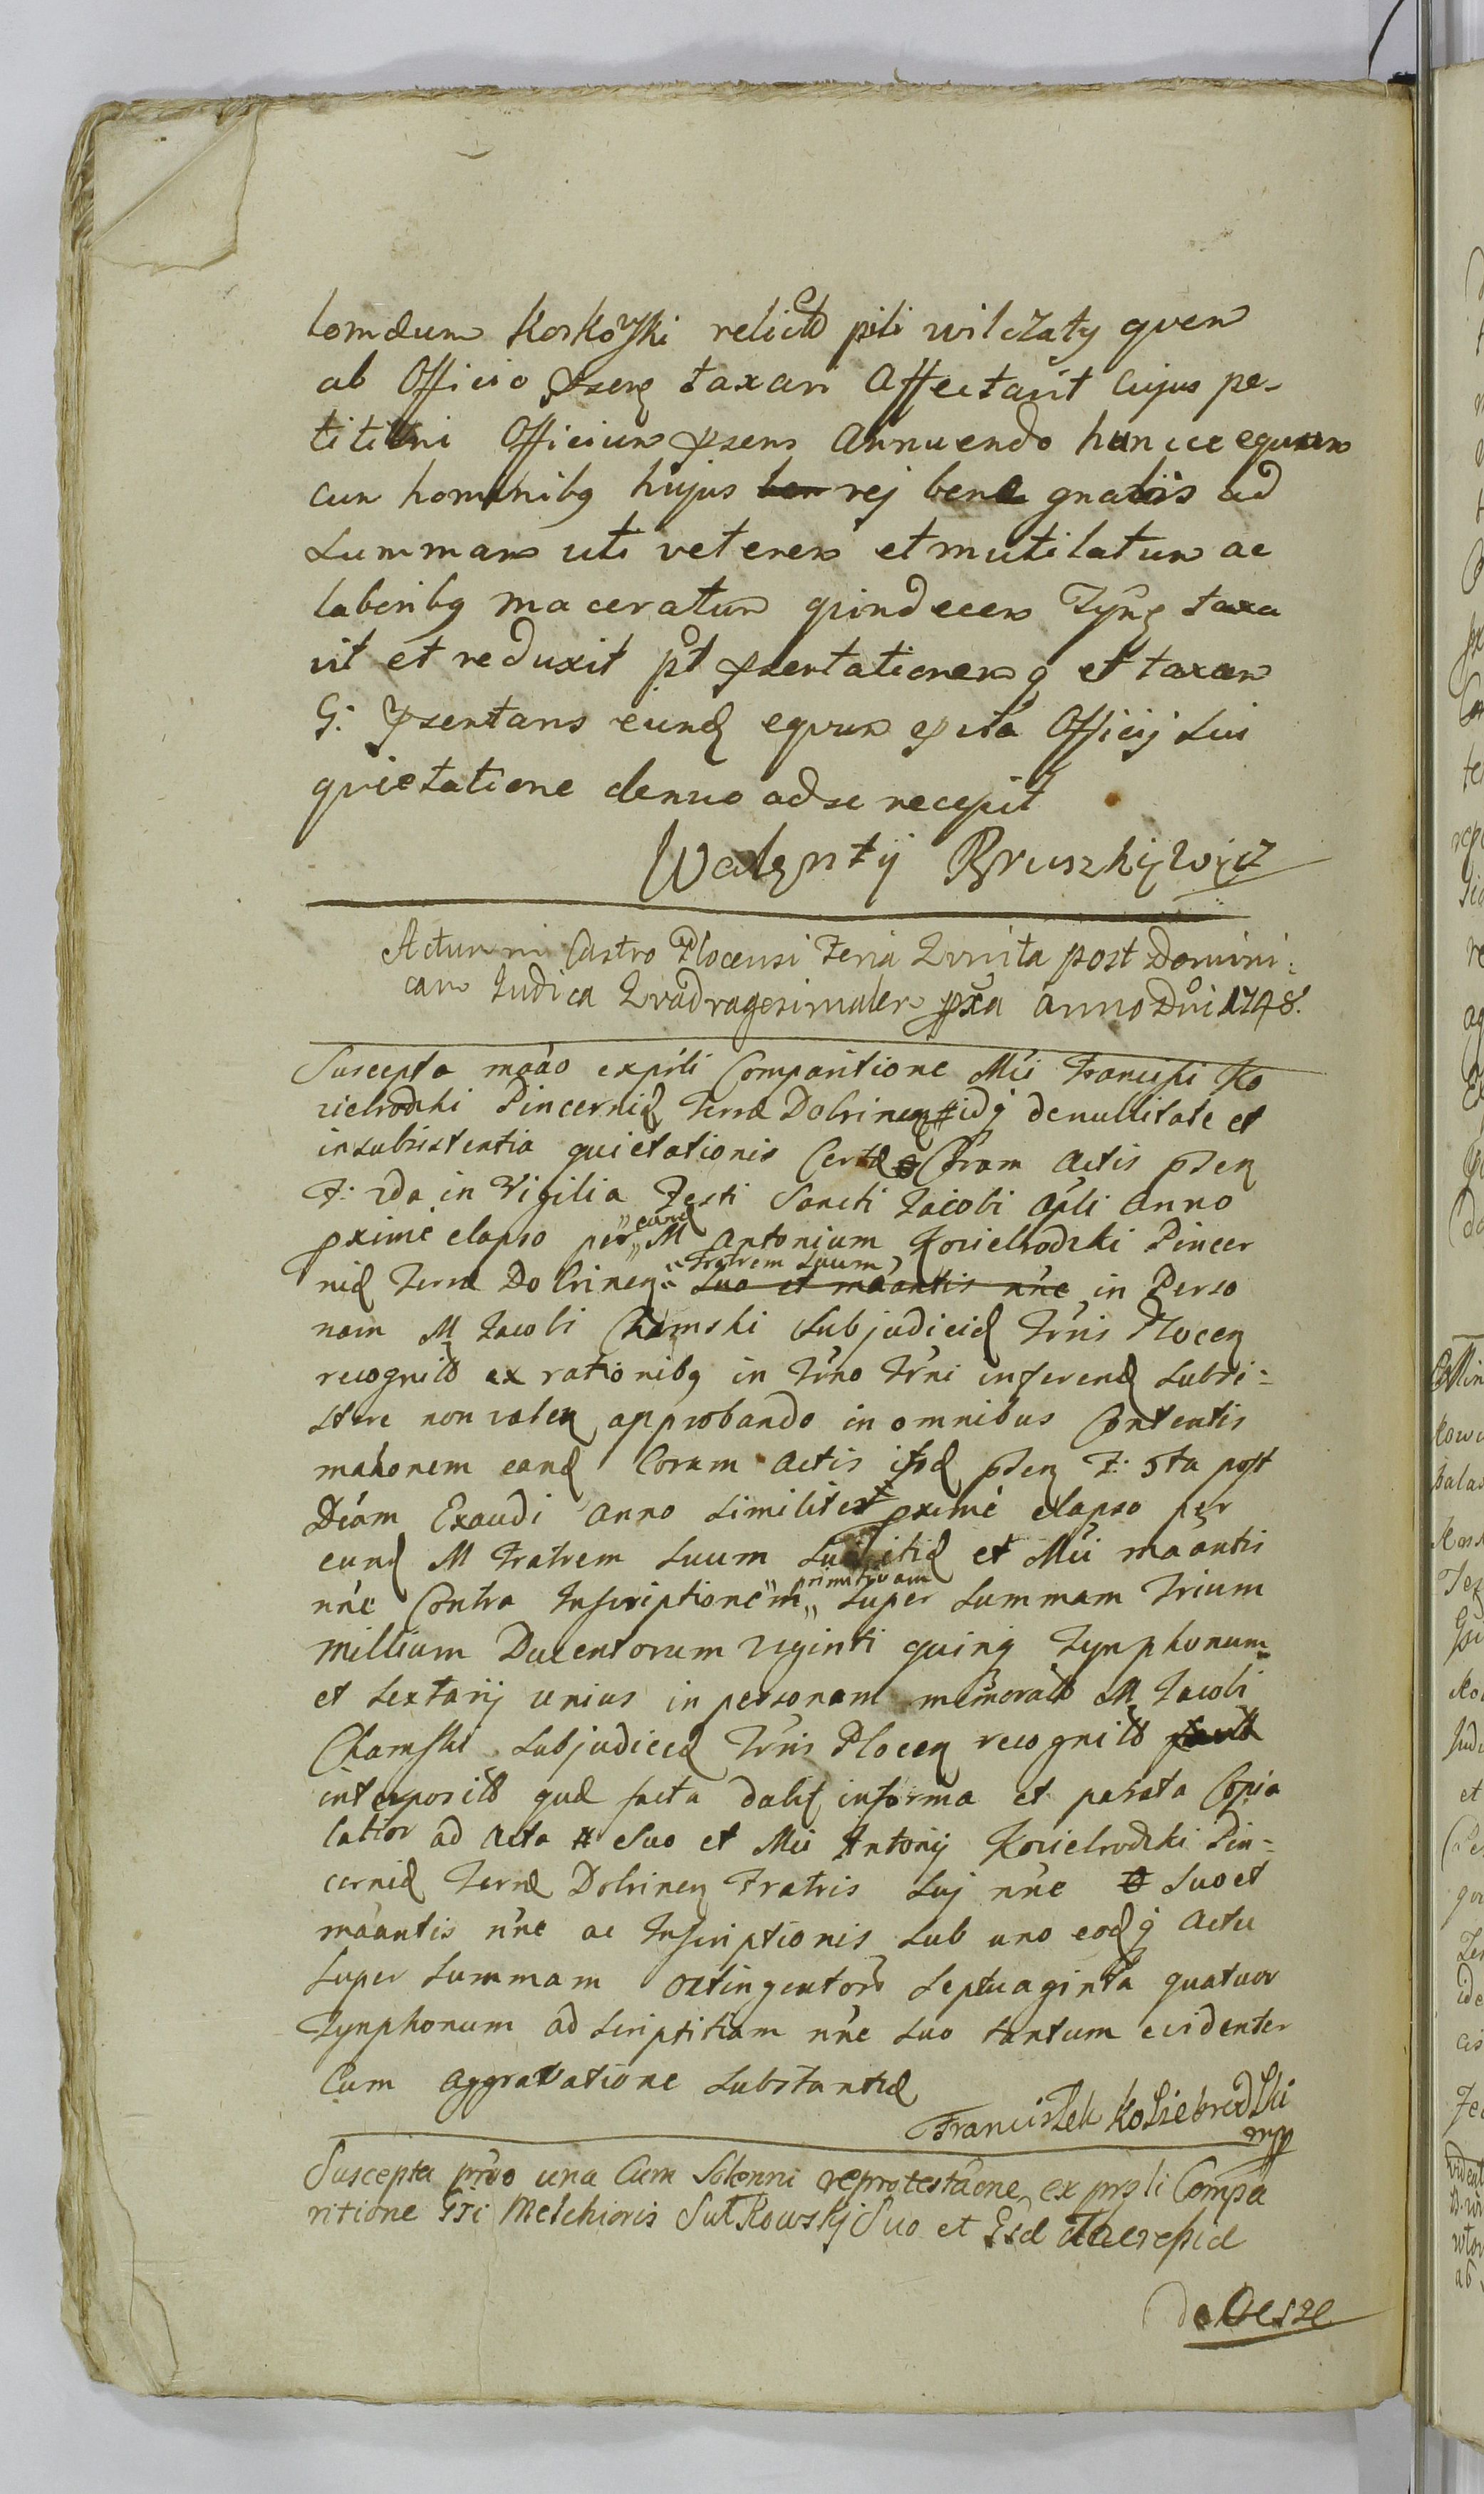 lomæum Koskowski relictū pili wilczaty quem
ab Officio pseng taxari Affectavit Cujus pe-
titioni Officium psens Annuendo huncce equum
cum hominibg hujus rej bene gnaris ad
Summam uti veterem et mutilatum ac
laboribg maceratum quindecem Tynf taxa
vit et reduxit pt psentationem q et taxam
G: psentans eund equum Officij Sui
quietatione denuo ad se recepit
Walenty Bruszkiewicz
Actum in Castro Plocensi Feria Quinta post Domini:
cam Judica Quadragesimalem pxa Anno Dni 1748.
Suscepta maāo exprśli Comparitione Mći Francisci Ko
ziebrodzki Pincernid Terræ Dobrinen idq de nullitate et
insubsistentia quietationis Certæ Coram Actis psen
F: 2da in Vigilia Festi Sancti Jacobi Apli Anno
pximé elapso per „eund„ M Antonium Koziebrodzki Pincer
nid Terræ Dobrinen „Fratrem Suum„ Suo et maantis n'ne in Perso
nam M Jacobi Chamski Subjudicid Trris Plocen
recognitō ex rationibg in Trno Trni inferend Subsi:
stere non valen approbando in omnibus Contentis
maāonem eand Coram Actis isd psen F: 5ta post
Dćam Exaudi Anno Similiter pximé elapso per
eund M Fratrem Suum et Mći maantis
n'ne Contra Inscriptionem „primitivam„ Super Summam Trium
millium Ducentorum Viginti quinq Tynphonum
et Sextarij unius in personam memorati M Jacobi
Chamski Subjudicid Trris Plocen recognitō
interpositō quæ facta in forma et parata Copia
latior ad Acta Suo et Mći Antonij Koziebrodzki Pin:
cernid Terræ Dobrinen Fratris Suj n'ne Suo et
maantis n'ne ac Inscriptionis Sub uno eodq Actu
Super Summam octingentorū Septuaginta quatuor
Tynphonum ad Scriptitiam n'ne Suo tantum evidenter
Cum Aggravatione Substantiæ
Franciszek Koziebrodzki
mpp
Suscepta prāo una Cum Solenni reprotestāone ex prsli Compa
ritione Gsi Melchioris Sutkowskj Suo et